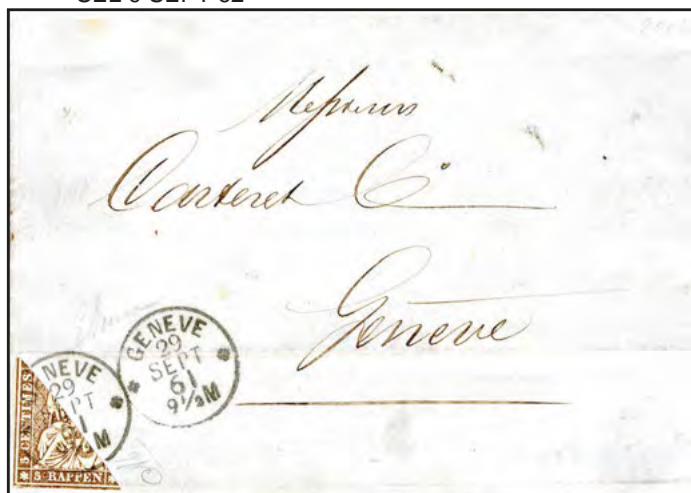 Messieurs
Carteret Cº
Genève
GENEVE
29
SEPT
61
9½M
NEVE
29
PT
1
M
5 CENTIMES
5 RAPPEN